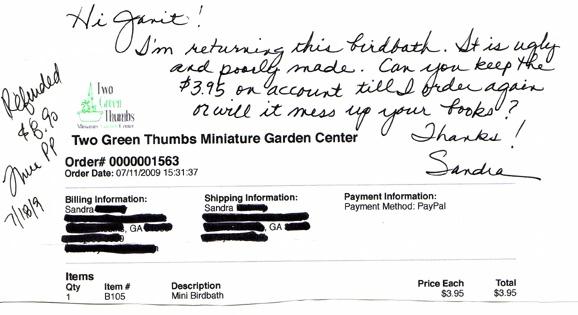 Hi Janit!
I'm returning this birdbath. It is ugly
and poorly made. Can you keep the
$3.95 on account till I order again
or will it mess up your books?
Thanks!
Sandra
Refunded
$8.90
thru PP
7/18/9
Two
Green
Thumbs
Miniature Garden Center
Two Green Thumbs Miniature Garden Center
Order# 0000001563
Order Date: 07/11/2009 15:31:37
Billing Information: Shipping Information: Payment Information:
Sandra Sandra Payment Method: PayPal
, GA , GA
Items
Qty Item # Description Price Each Total
1 B105 Mini Birdbath $3.95 $3.95